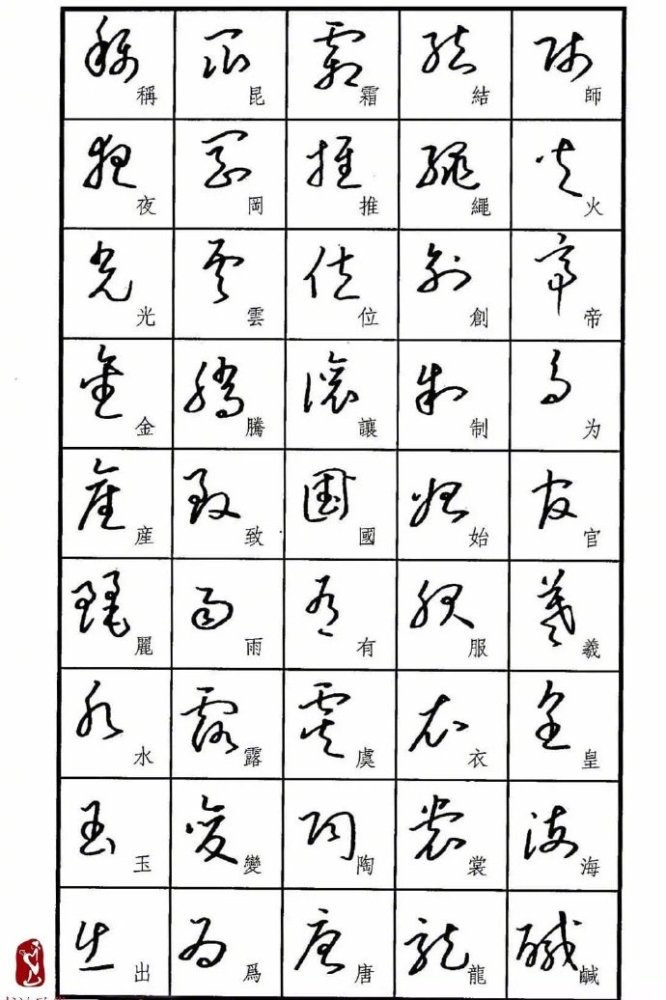 稱夜光金産麗水玉出
昆岡雲騰致雨露變爲
霜推位讓國有虞陶唐
結繩創制始服衣裳龍
師火帝为官羲皇海鹹